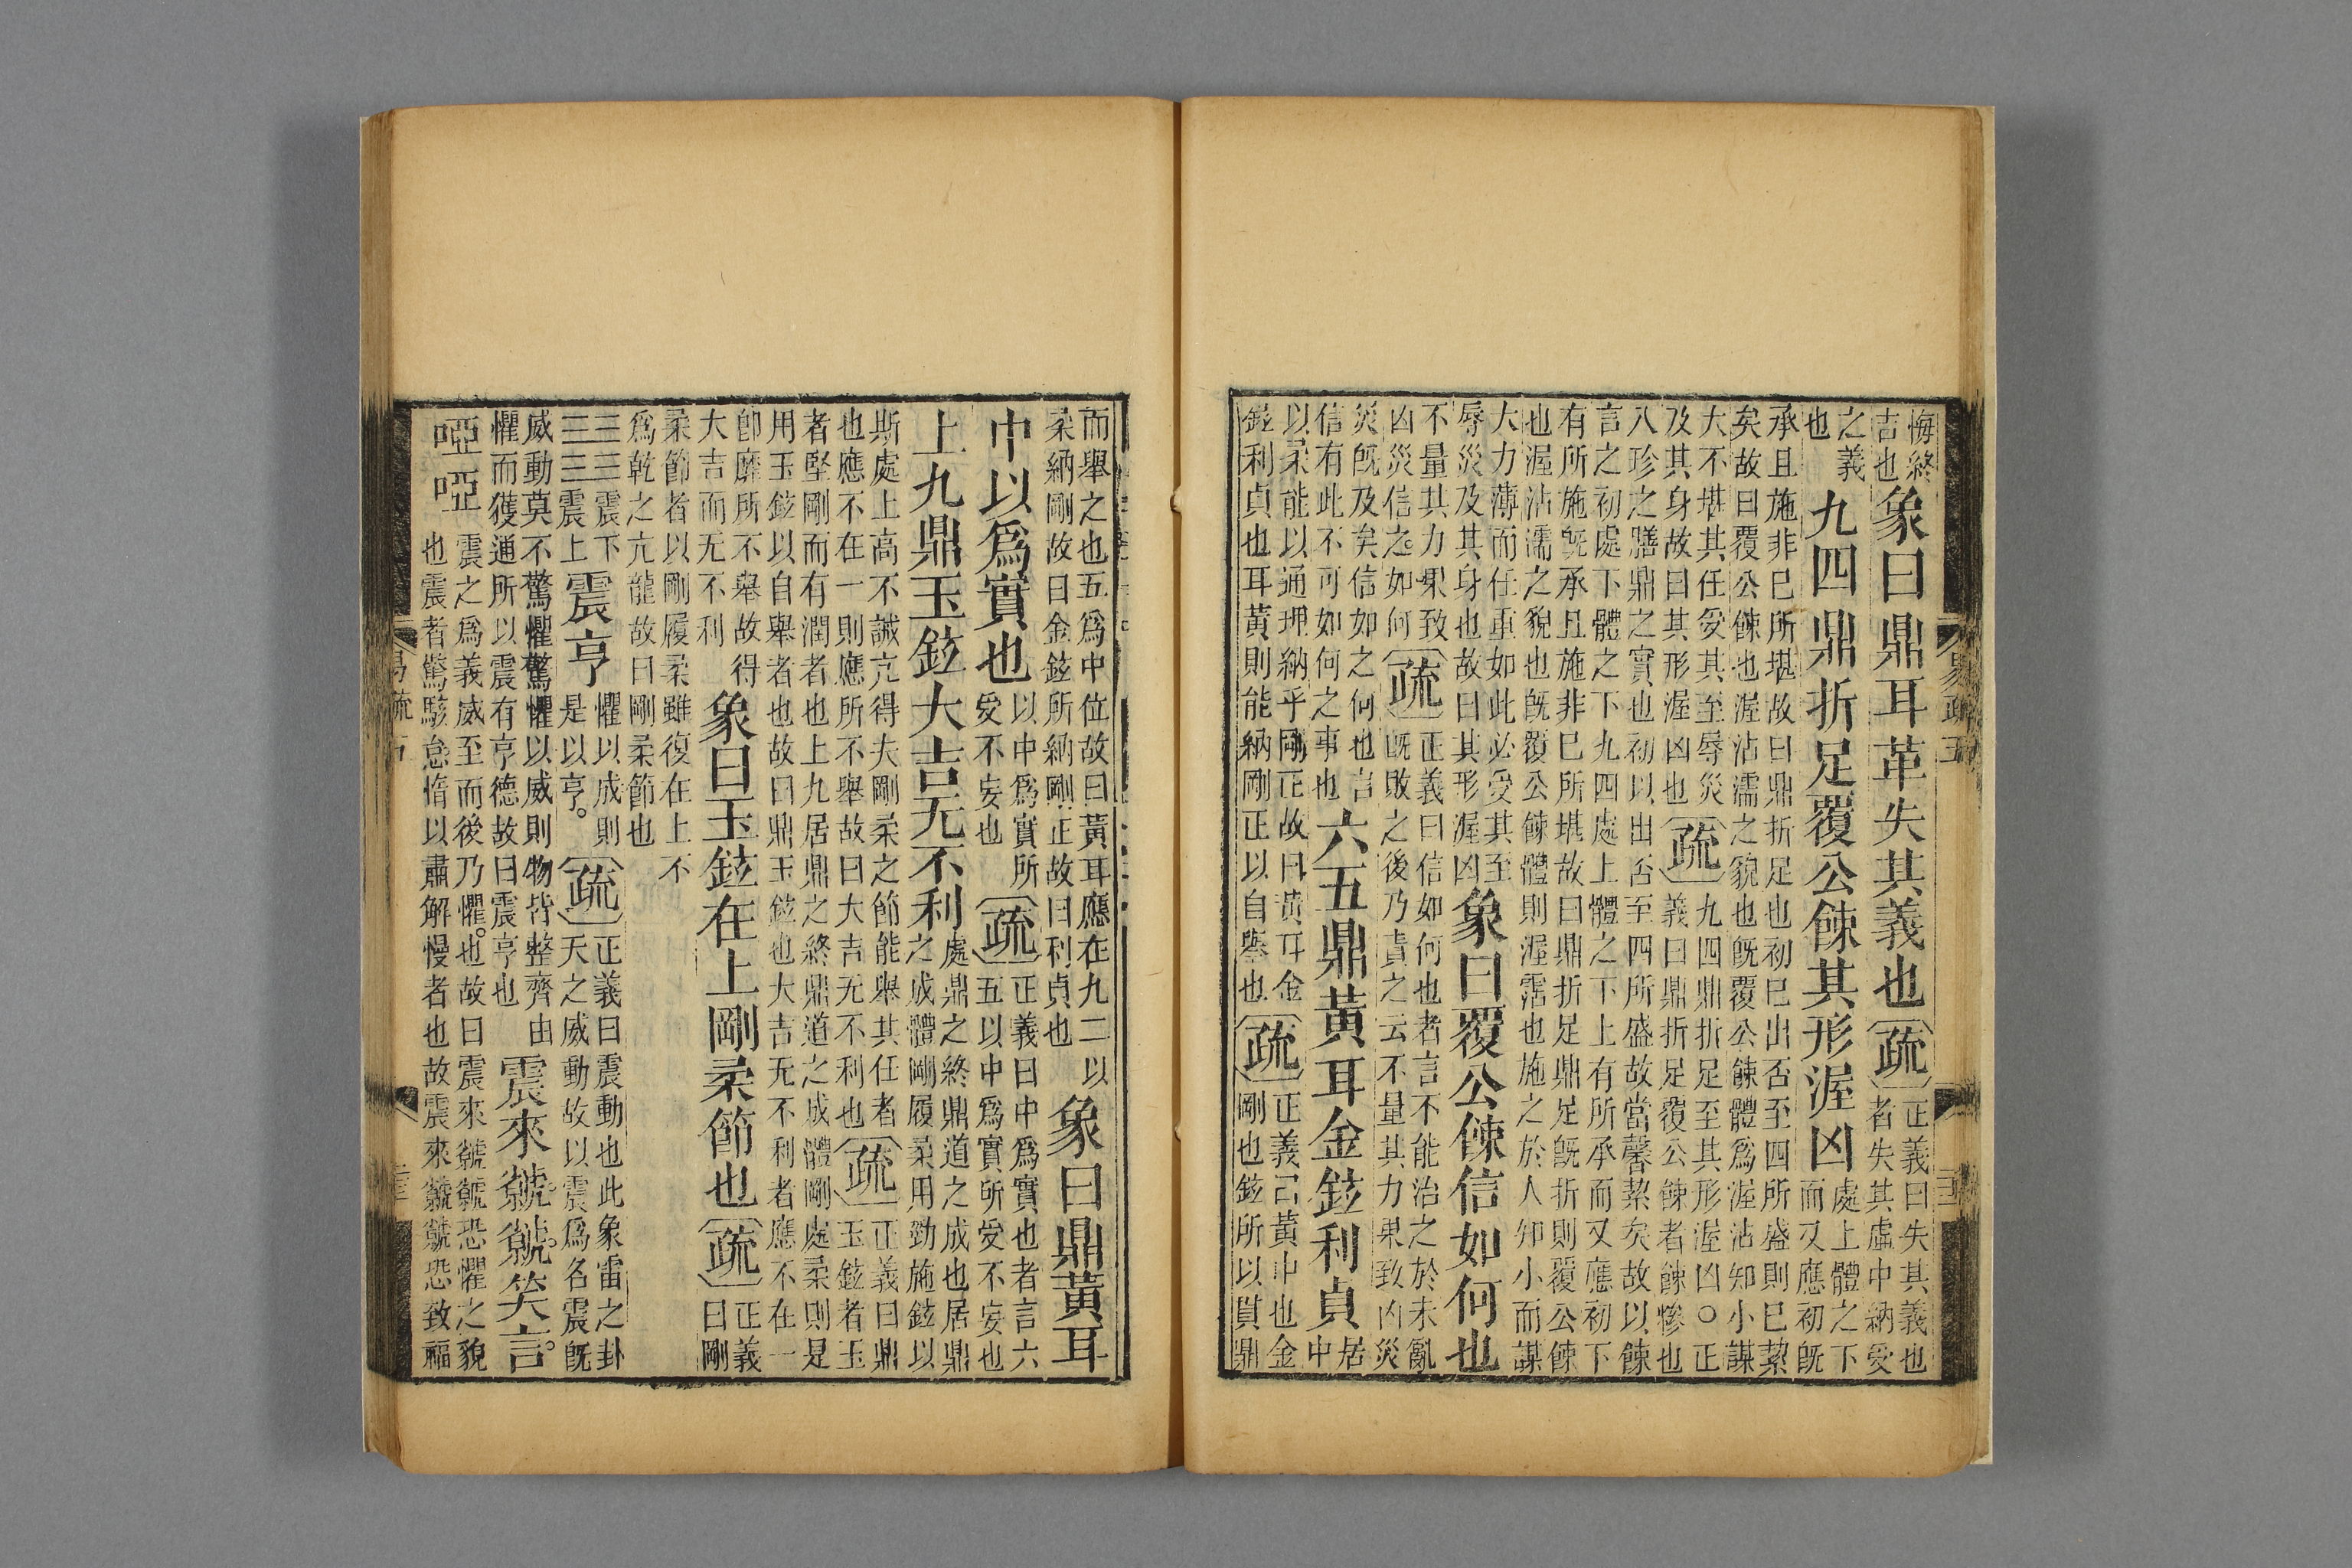 悔終吉也象曰鼎耳革失其義也疏正義曰失其義也者失其虛中納受
之義也九四鼎折足覆公餗其形渥凶處上體之下而又應初既
承且施非已所堪故曰鼎折足也初已出否至四所盛則已絜
矣故曰覆公餗也渥沾濡之貌也既覆公餗體爲渥沾知小謀
大不堪其任受其至辱災及其身故曰其形渥凶也疏九四鼎折足至其形渥凶○正義曰鼎折足覆公餗者餗糝也
八珍之膳鼎之實也初以出否至四所盛故當馨絜矣故以餗
言之初處下體之下九四處上體之下上有所承而又應初下
有所施既承且施非已所堪故曰鼎折足鼎足既折則覆公餗
也渥沾濡之貌也既覆公餗體則渥霑也施之於人知小而謀
大力薄而任重如此必受其至辱災及其身也故曰其形渥凶象曰覆公餗信如何也
不量其力果致凶災信之如何疏正義曰信如何也者言不能治之於未亂既敗之後乃責之云不量其力果致凶災
災既及矣信如之何也言信有此不可如何之事也六五鼎黃耳金鉉利貞居中
以柔能以通理納乎剛正故曰黃耳金鉉利貞也耳黃則能納剛正以自舉也疏正義曰黃中也金剛也鉉所以貫鼎
易疏五
而舉之也五爲中位故曰黃耳應在九二以柔納剛故曰金鉉所納剛正故曰利貞也象曰鼎黃耳
中以爲實也以中爲實所受不妄也疏正義曰中爲實也者言六五以中爲實所受不妄也
上九鼎玉鉉大吉无不利處鼎之終鼎道之成也居鼎之成體剛履柔用勁施鉉以
斯處上高不誠亢得夫剛柔之節能舉其任者也應不在一則應所不舉故曰大吉无不利也疏正義曰鼎玉鉉者玉
者堅剛而有潤者也上九居鼎之終鼎道之成體剛處柔則是
用玉鉉以自舉者也故曰鼎玉鉉也大吉无不利者應不在一
卽靡所不舉故得大吉而无不利象曰玉鉉在上剛柔節也疏正義曰剛
柔節者以剛履柔雖復在上不
爲乾之亢龍故曰剛柔節也
震下震上震亨懼以成則是以亨。疏正義曰震動也此象雷之卦天之威動故以震爲名震既
威動莫不驚懼驚懼以威則物皆整齊由懼而獲通所以震有亨德故曰震亨也震來虩虩笑言。
啞啞震之爲義威至而後乃懼。也故曰震來虩虩恐懼之貌也震者驚駭怠惰以肅解慢者也故震來虩虩恐致福